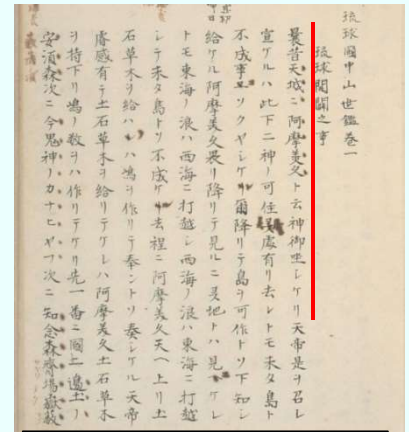 琉球國中山世鑑卷一
琉球開闢之事
曩昔天城ニ阿摩美久ト云神御坐シケリ天帝是ヲ召レ
宣ケルハ此下ニ神ノ可住靈處有リ去レトモ未タ島ト
不成事コソクヤシケレ爾降リテ島ヲ可作トソ下知シ
給ケル阿摩美久畏リ降リテ見ルニ靈地トハ見ヘケレ
トモ東海ノ浪ハ西海ニ打越シ西海ノ浪ハ東海ニ打越
シテ未タ島トソ不成ケル去程ニ阿摩美久天ヘ上リ土
石草木ヲ給ハレハ島ヲ作リテ奉ントソ奏シケル天帝
睿感有テ土石草木ヲ給リテケレハ阿摩美久土石草木
ヲ持下リ島ノ數ヲハ作リテケリ先ツ一番ニ國上邊土ノ
安須森次ニ今鬼神ノカナヒヤフ次ニ知念森齋場嶽薮